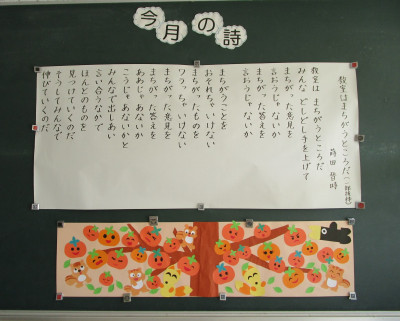 今月の詩
教室はまちがうところだ(一部抜粋)
蒔田晋治
教室は まちがうところだ
みんな どしどし手を上げて
まちがった意見を
言おうじゃないか
まちがった答えを
言おうじゃないか
まちがうことを
おそれちゃいけない
まちがったものを
ワラっちゃいけない
まちがった意見を
まちがった答えを
ああじゃあないか
こうじゃあないかと
みんなで出しあい
言い合うなかで
ほんとのものを
見つけていくのだ
そうしてみんなで
伸びていくのだ